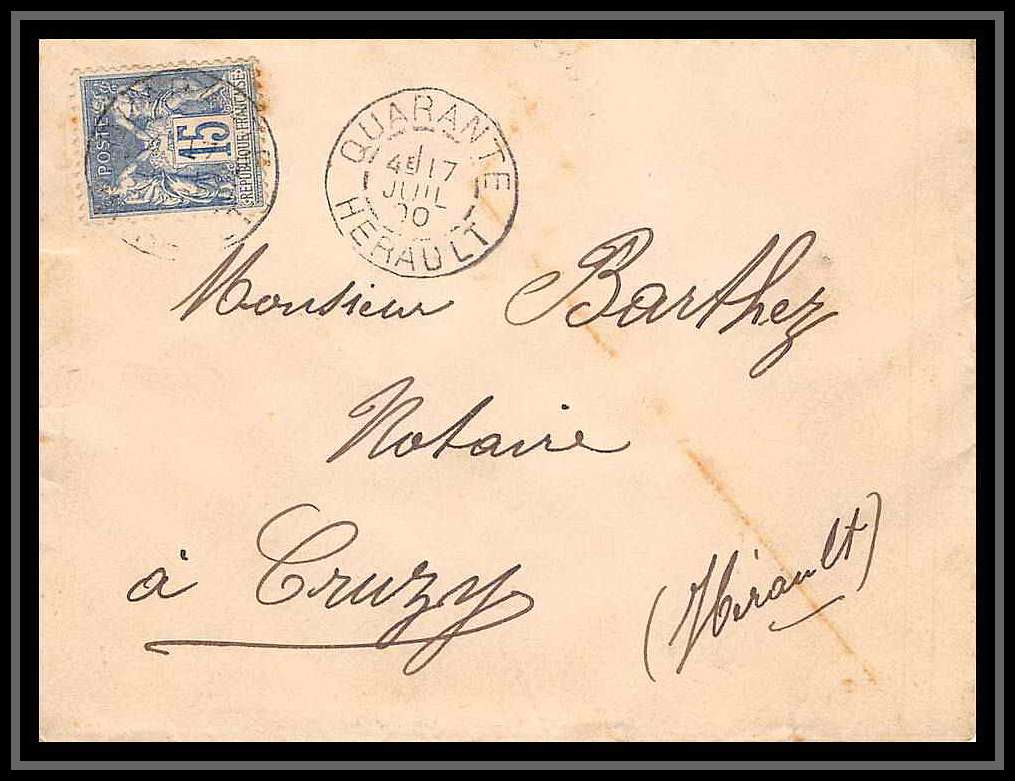 POSTES
15
RÉPUBLIQUE FRANÇAISE
QUARANTE
4E 17
JUIL
00
HERAULT
Monsieur Barthez
Notaire
à Cruzy
(Hérault)